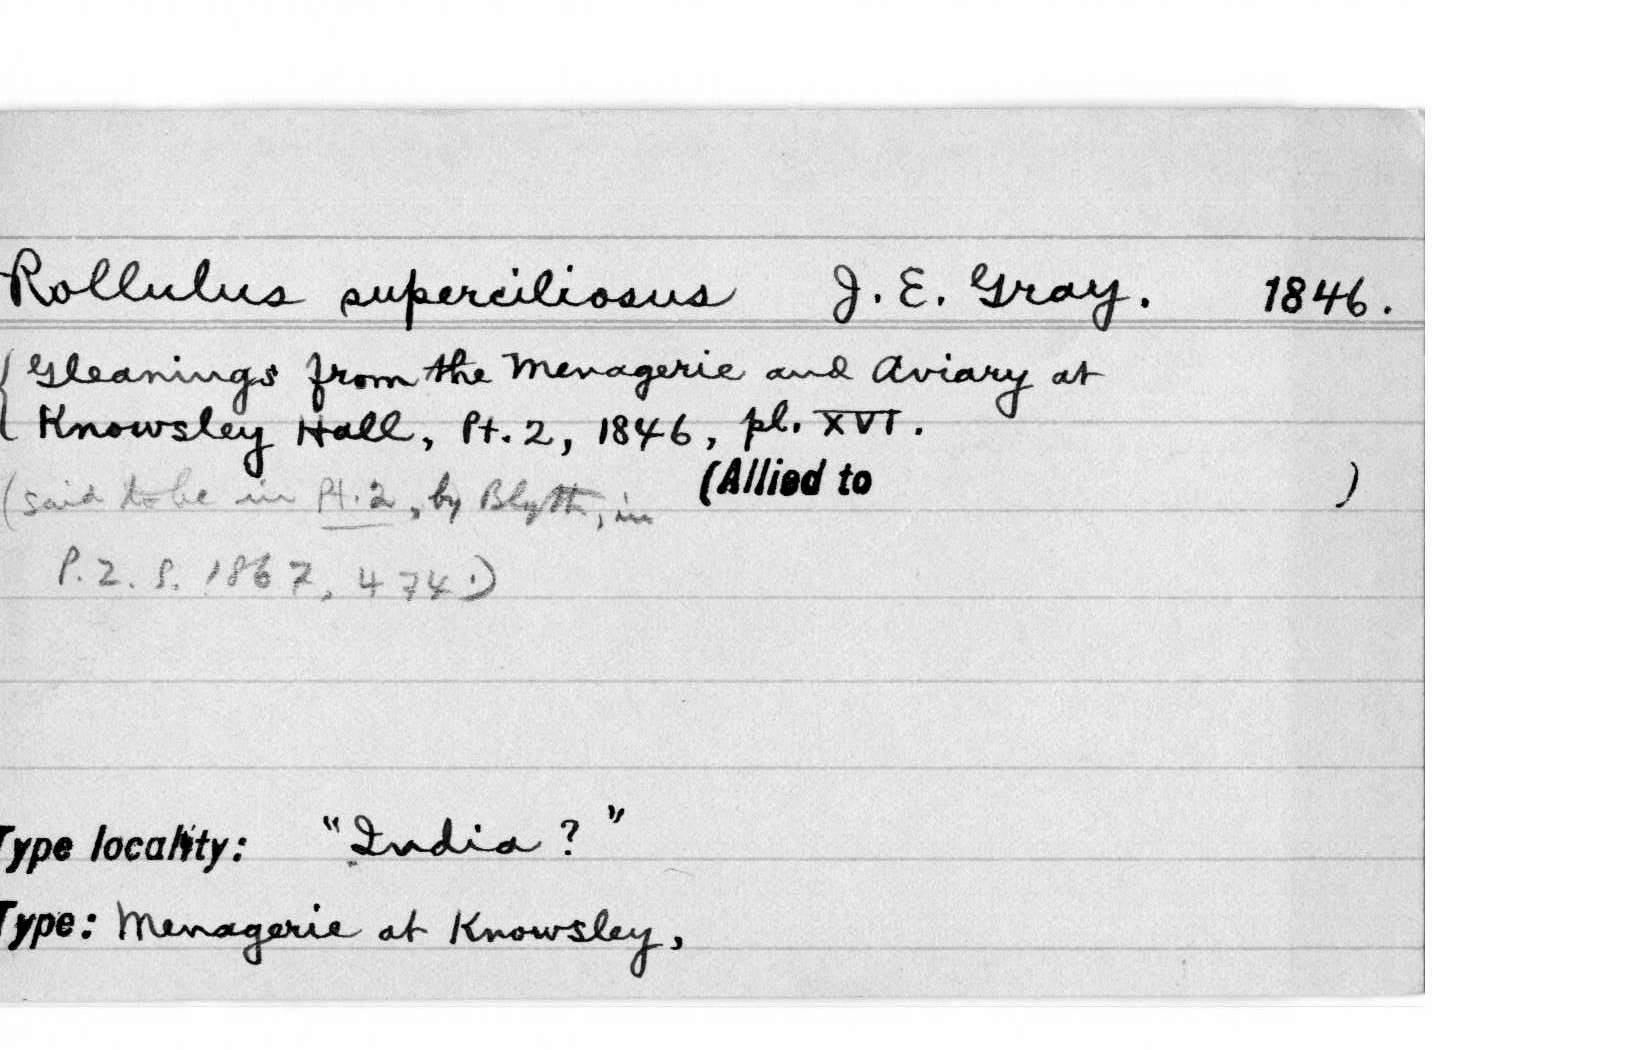 Rollulus superciliosus J. E. Gray. 1846.
{ Gleanings from the Menagerie and Aviary at
Knowsley Hall, Pt. 2, 1846, pl. XVI.
(Allied to )
(said to be in Pt. 2, by Blyth, in
P. Z. S. 1867, 474.)
Type locality: "India?"
Type: Menagerie at Knowsley,